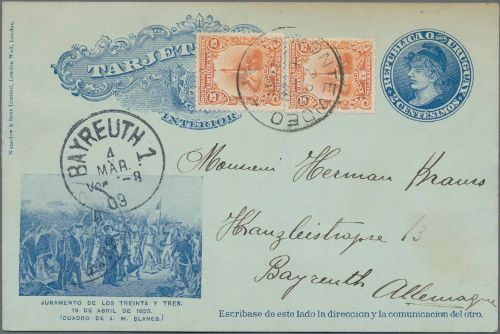 TARJETA
INTERIOR
REPUBLICA O. DEL URUGUAY
2 CENTESIMOS
Waterlow & Sons Limited, London Wall, London.
MONTEVIDEO
BAYREUTH 1
4
MAR.
09
Monsieur Herman Krauss
Kanzleistrasse 13
Bayreuth
Allemagne
JURAMENTO DE LOS TREINTA Y TRES.
19 DE ABRIL DE 1825.
(CUADRO DE J. M. BLANES.)
Escribase de este lado la direccion y la comunicacion del otro.